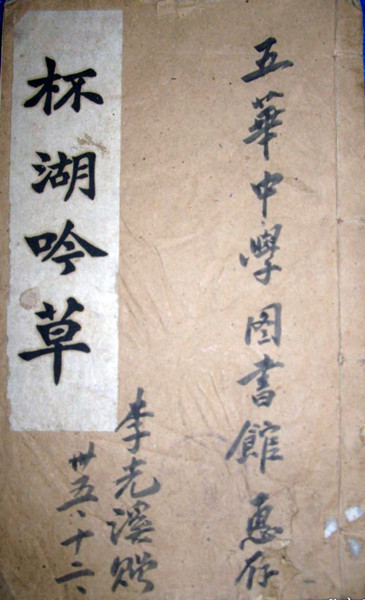 五華中學圖書館惠存
李光溪贈
卅五、十二、
杯湖吟草